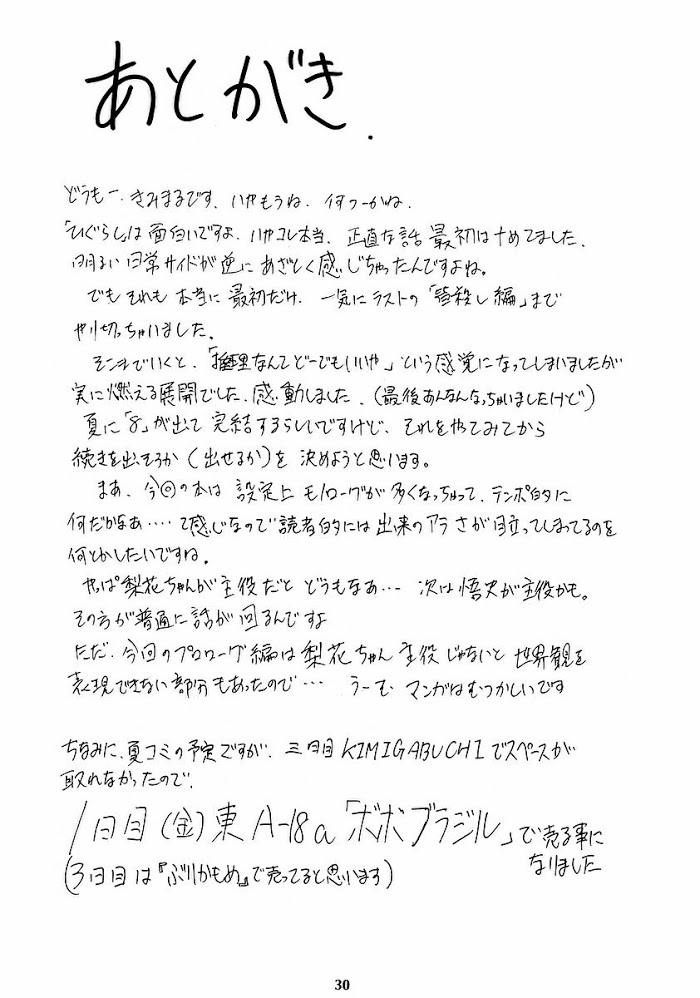 あとがき.
どうもー、きみまるです、いやもうね、何つーかね、
「ひぐらし」は面白いですよ、いやコレ本当、正直な話最初はナめてました、
明るい日常サイドが逆にあざとく感じちゃったんですよね。
でもそれも本当に最初だけ、一気にラストの「皆殺し編」まで
やり切っちゃいました。
そこまでいくと、「推理なんてどーでもいいや」という感覚になってしまいましたが
実に燃える展開でした、感動しました、(最後あんなんなっちゃいましたけど)
夏に「8」が出て完結するらしいですけど、それをやってみてから
続きを出そうか(出せるか)を決めようと思います。
まあ、今回の本は設定上モノローグが多くなっちゃって、テンポ的に
何だかなあ‥‥て感じなので読者的には出来のアラさが目立ってしまってるのを
何とかしたいですね。
やっぱ梨花ちゃんが主役だとどうもなあ… 次は悟史が主役かも。
その方が普通に話が回るんですよ
ただ、今回のプロローグ編は梨花ちゃん主役じゃないと世界観を
表現できない部分もあったので… うーむ、マンガはむつかしいです
ちなみに、夏コミの予定ですが、三日目KIMIGABUCHIでスペースが
取れなかったので、
1日目(金)東A-18a「ボボブラジル」で売る事に
なりました
(3日目は『ぶりかもめ』で売ってると思います)
30